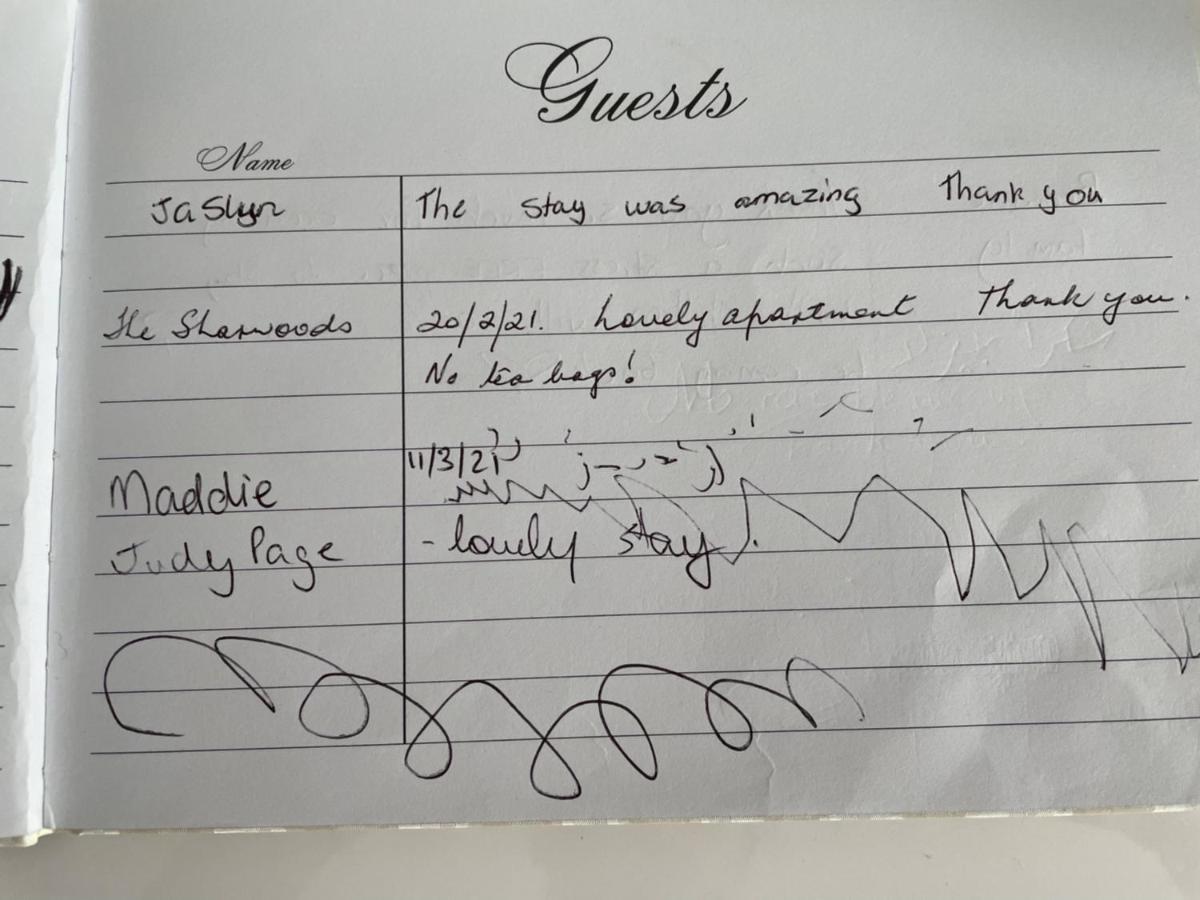 Guests
Name
Jaslyn The stay was amazing Thank you
The Sharwoods 20/2/21. Lovely apartment Thank you.
No tea bags!
11/3/21
Maddie
Judy Page - lovely stay.